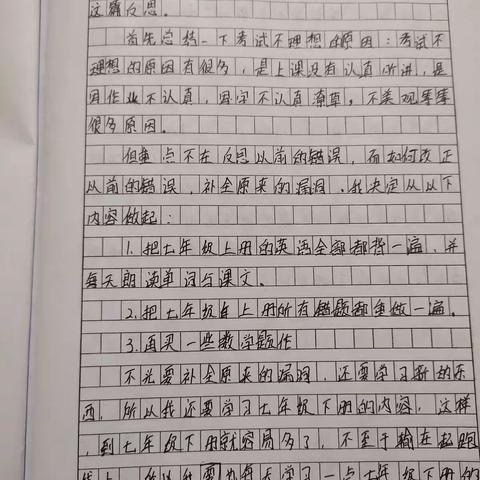 这篇反思。
首先总结一下考试不理想的原因：考试不
理想的原因有很多，是上课没有认真听讲，是
因作业不认真，写字不认真潦草，不美观等等
很多原因。
但重点不在反思以前的错误，而如何改正
以前的错误，补全原来的漏洞，我决定从以下
内容做起：
1.把七年级上册的英语全部都背一遍，并
每天朗读单词与课文。
2.把七年级上册所有错题都重做一遍。
3.再买一些数学题作
不光要补全原来的漏洞，还要学习新的东
西，所以我还要学习七年级下册的内容，这样
，到七年级下册就容易多了，不至于输在起跑
线上，所以我要每天学习一点七年级下册的